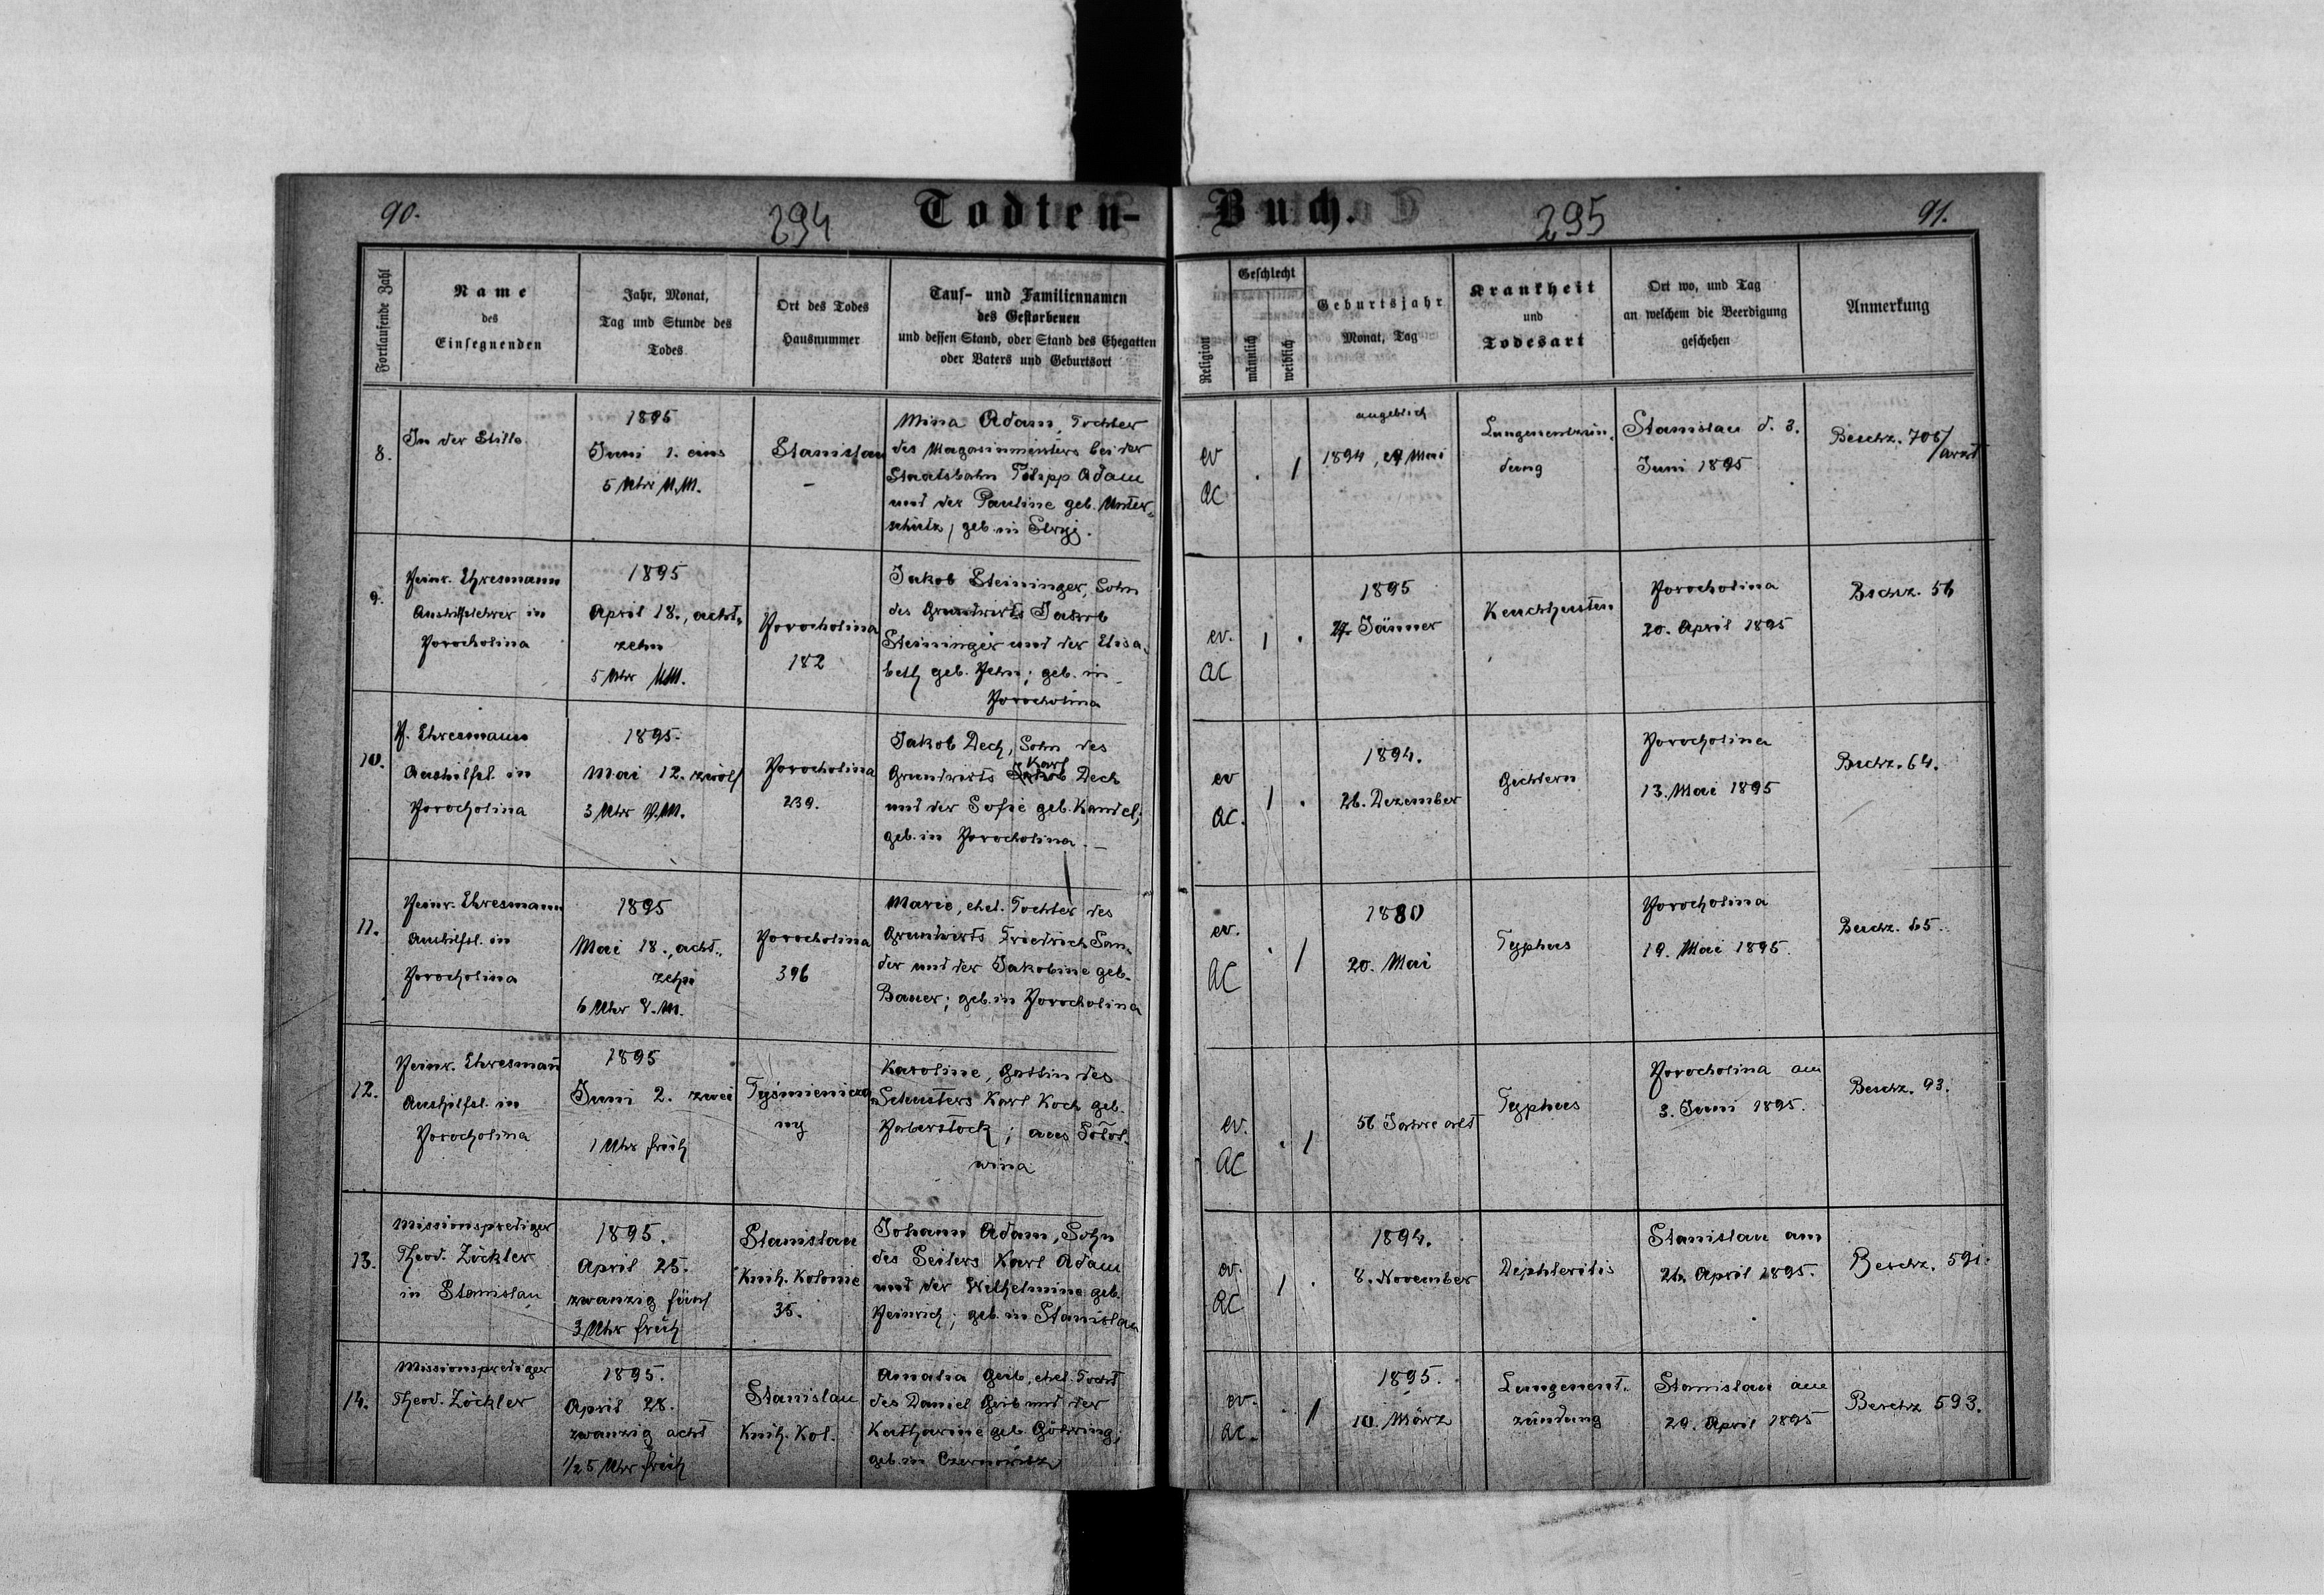 90.
294
Todten-
Buch.
295
91.
Fortlaufende Zahl
Name
des
Einsegnenden
Jahr, Monat,
Tag und Stunde des
Todes
Ort des Todes
Hausnummer
Tauf- und Familiennamen
des Gestorbenen
und dessen Stand, oder Stand des Ehegatten
oder Vaters und Geburtsort
Religion
Geschlecht
männlich
weiblich
Geburtsjahr
Monat, Tag
Krankheit
und
Todesart
Ort wo, und Tag
an welchem die Beerdigung
geschehen
Anmerkung
8.
In der Stille
1895
Juni 1. eins
5 Uhr N.M.
Stanislau
-
Mina Adam, Tochter
des Magazinmeisters bei der
Staatsbahn Filipp Adam
und der Pauline geb. Unter-
schütz, geb. in Stryj.
ev
AC
. /
angeblich
1894, Mai
Lungenentzün-
dung
Stanislau d. 3.
Juni 1895
Beschz. 706/
9.
Heinr. Ehresmann
Aushilfslehrer in
Horocholina
1895
April 18., acht-
zehn
5 Uhr NM.
Horocholina
182
Jakob Steininger, Sohn
des Grundwirts Jakob
Steininger und der Elisa-
beth geb. Hehn; geb. in
Horocholina
ev.
AC
/ .
1895
27. Jänner
Keuchhusten
Horocholina
20. April 1895
Bschz. 56
10.
H. Ehresmann
Aushilfsl. in
Horocholina
1895.
Mai 12. zwölf
3 Uhr V.M.
Horocholina
239.
Jakob Dech, Sohn des
Karl
Grundwirts Jakob Dech
und der Sofie geb. Kandel;
geb. in Horocholina. -
ev
AC.
/ .
1894.
26. Dezember
Gichtern
Horocholina
13. Mai 1895
Bschz. 64.
11.
Heinr. Ehresmann
Aushilfsl. in
Horocholina
1895
Mai 18., acht-
zehn
6 Uhr V.M.
Horocholina
396
Marie, ehel. Tochter des
Grundwirts Friedrich San-
der und der Jakobine geb.
Bauer; geb. in Horocholina
ev.
AC
. /
1880
20. Mai
Typhus
Horocholina
19. Mai 1895.
Beschz. 65.
12.
Heinr. Ehresmañ
Aushilfsl. in
Horocholina
1895
Juni 2. zwei
1 Uhr früh
Tyśmienicza-
ny
Karoline, Gattin des
Schusters Karl Koch geb.
Haberstock; aus Sołot-
wina
ev.
AC
. /
56 Jahre alt
Typhus
Horocholina am
3. Juni 1895.
Beschz. 93.
13.
Missionsprediger
Theod. Zöckler
in Stanislau
1895.
April 25.
zwanzig fünf
3 Uhr früh
Stanislau
Knih. Kolonie
35.
Johann Adam, Sohn
des Seilers Karl Adam
und der Wilhelmine geb.
Heinrich; geb. in Stanislau
ev.
AC
/ .
1894.
8. November
Diphteritis
Stanislau am
26. April 1895.
Beschz. 591.
14.
Missionsprediger
Theod. Zöckler
1895.
April 28.
zwanzig acht
1/2 5 Uhr früh
Stanislau
Knih. Kol.
Amalia Geib, ehel. Tocht
des Daniel Geib und der
Katharine geb. Göhring;
geb. in Czernowitz
ev.
AC.
. /
1895.
10. März
Lungenent-
zündung
Stanislau am
29. April 1895
Beschz 593.